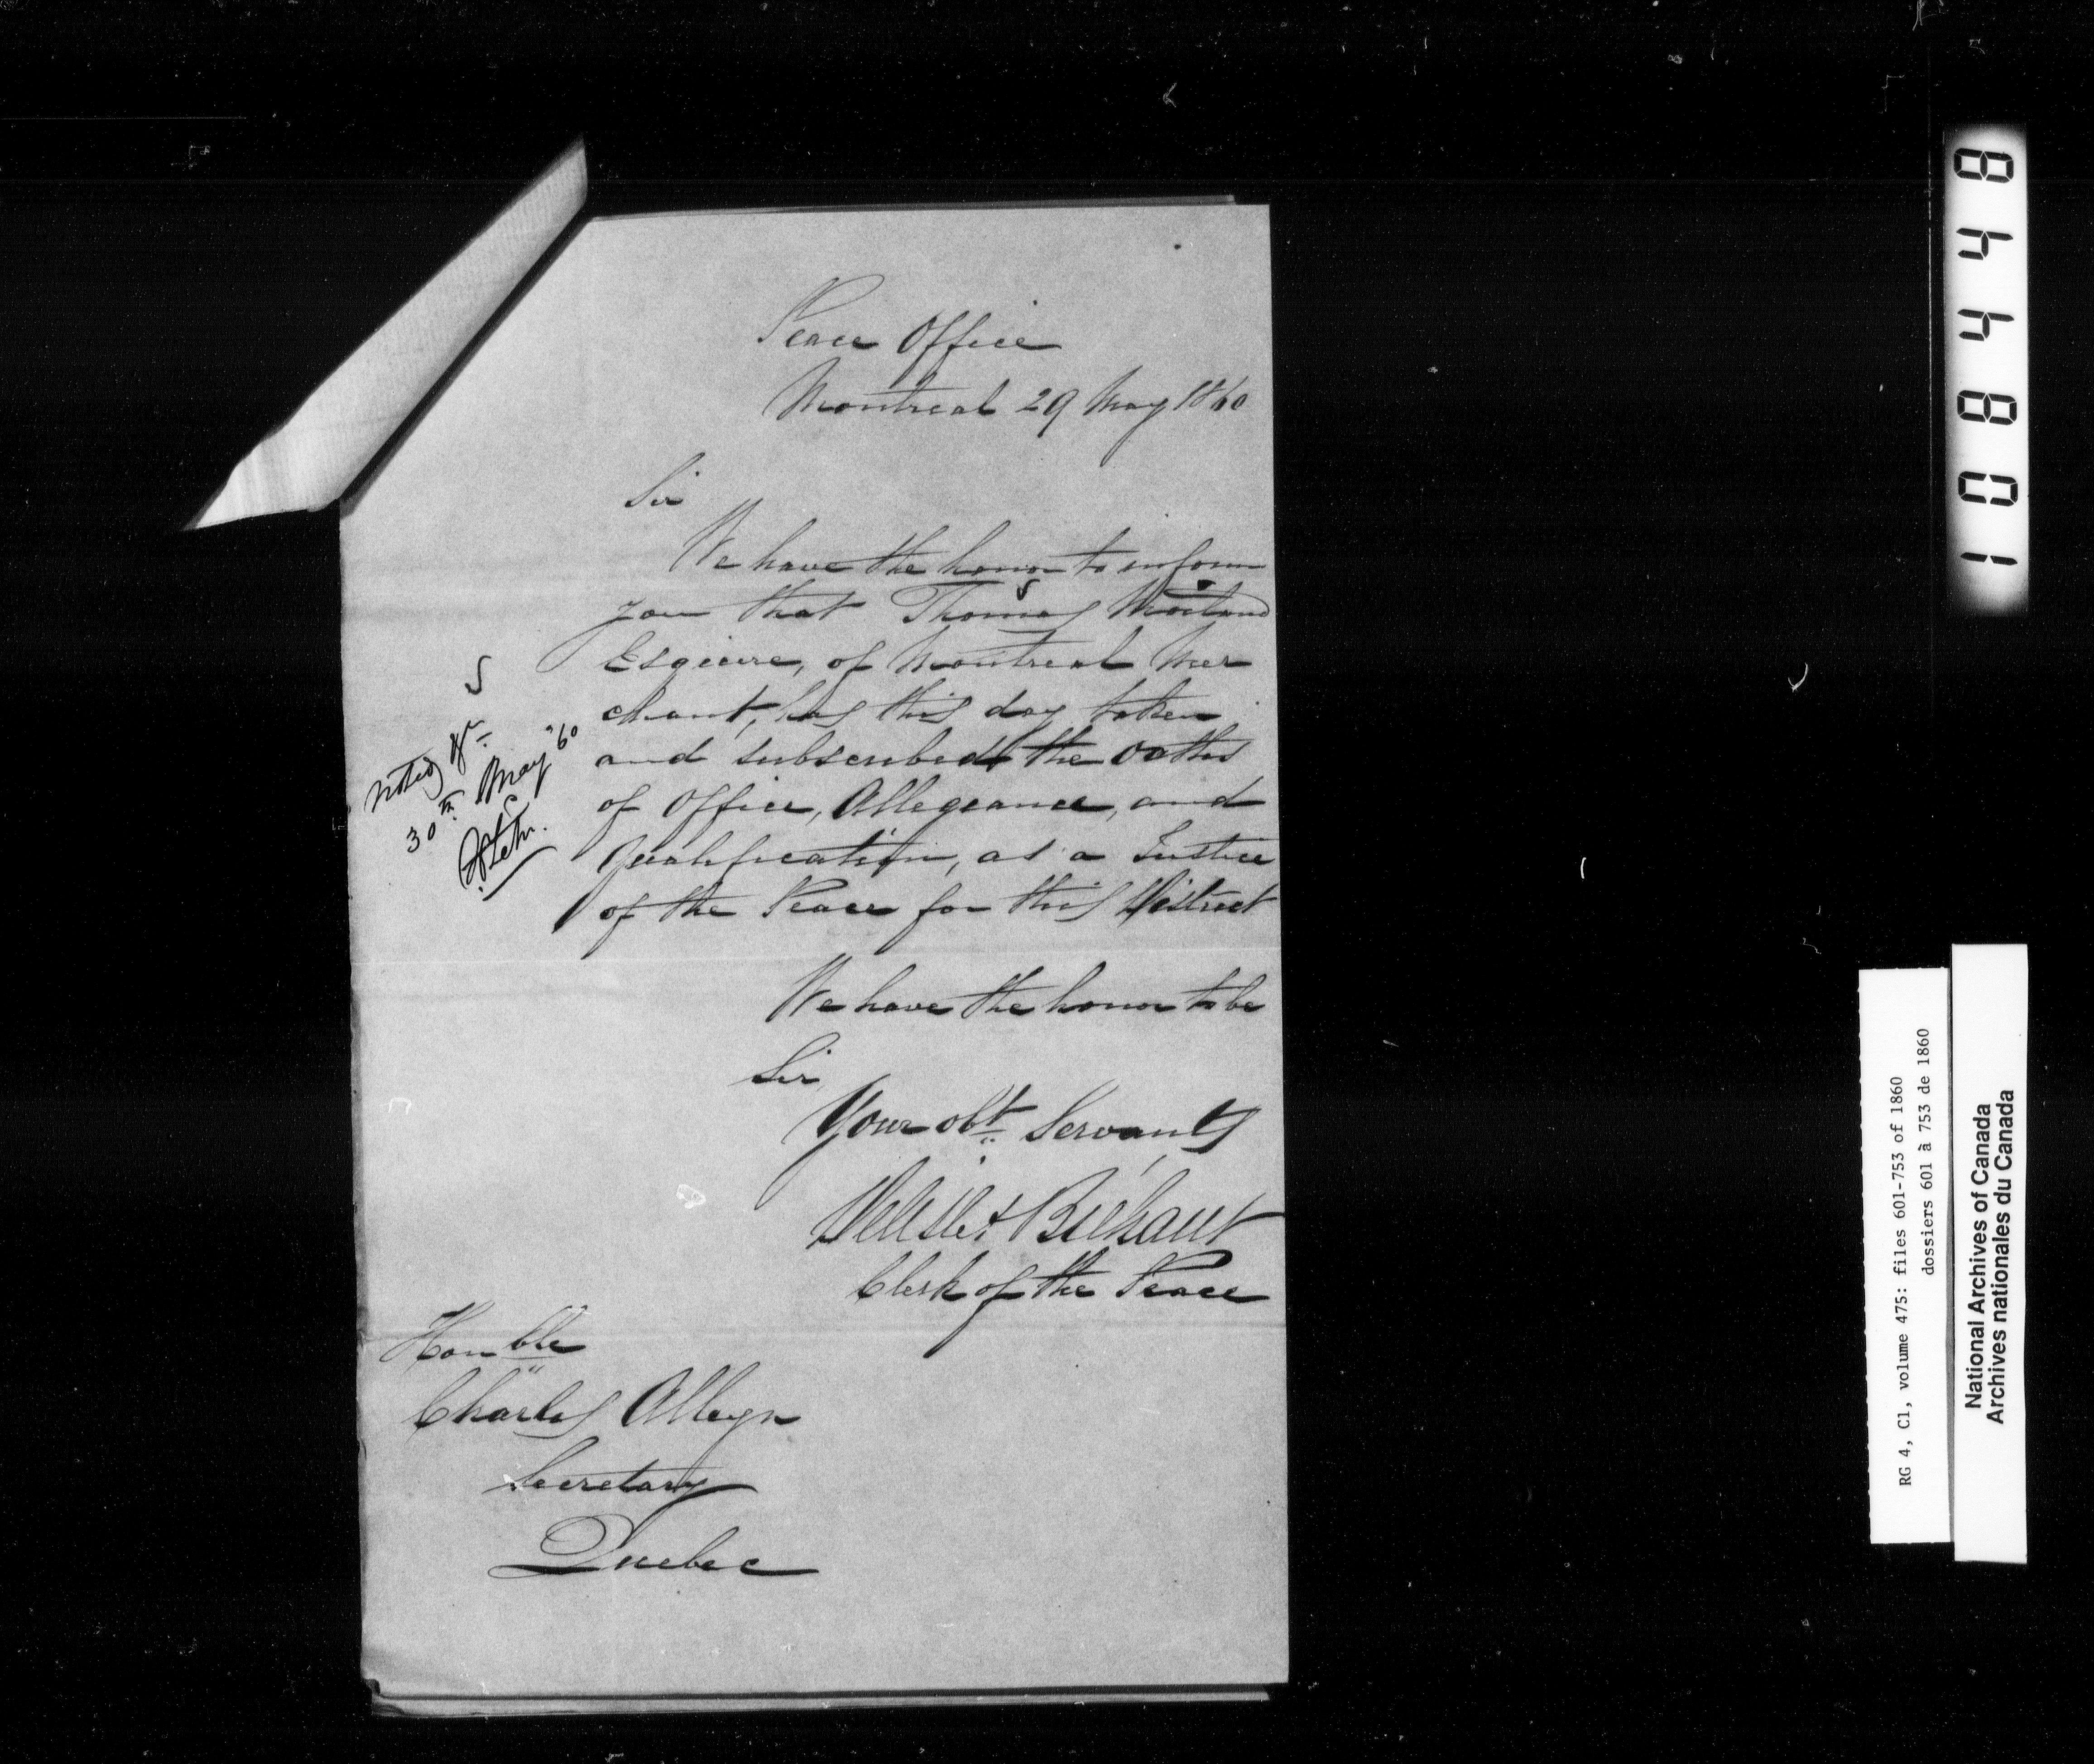 Peace Office
Montreal 29 May 1860
Sir
We have the honor to inform
you that Thomas Morland
Esquire, of Montreal Mer
chant, has this day taken
and subscribed the Oaths
of Office, Allegeance, and
Qualification, as a Justice
of the Peace for this District
We have the honor to be
Sir
Your obt Servants
Delisle & Brehaut
Clerk of the Peace
Honble
Charles Alleyn
Secretary
Quebec
30th May "60
1084448
RG 4, C1, volume 475: files 601-753 of 1860
dossiers 601 à 753 de 1860
National Archives of Canada
Archives nationales du Canada